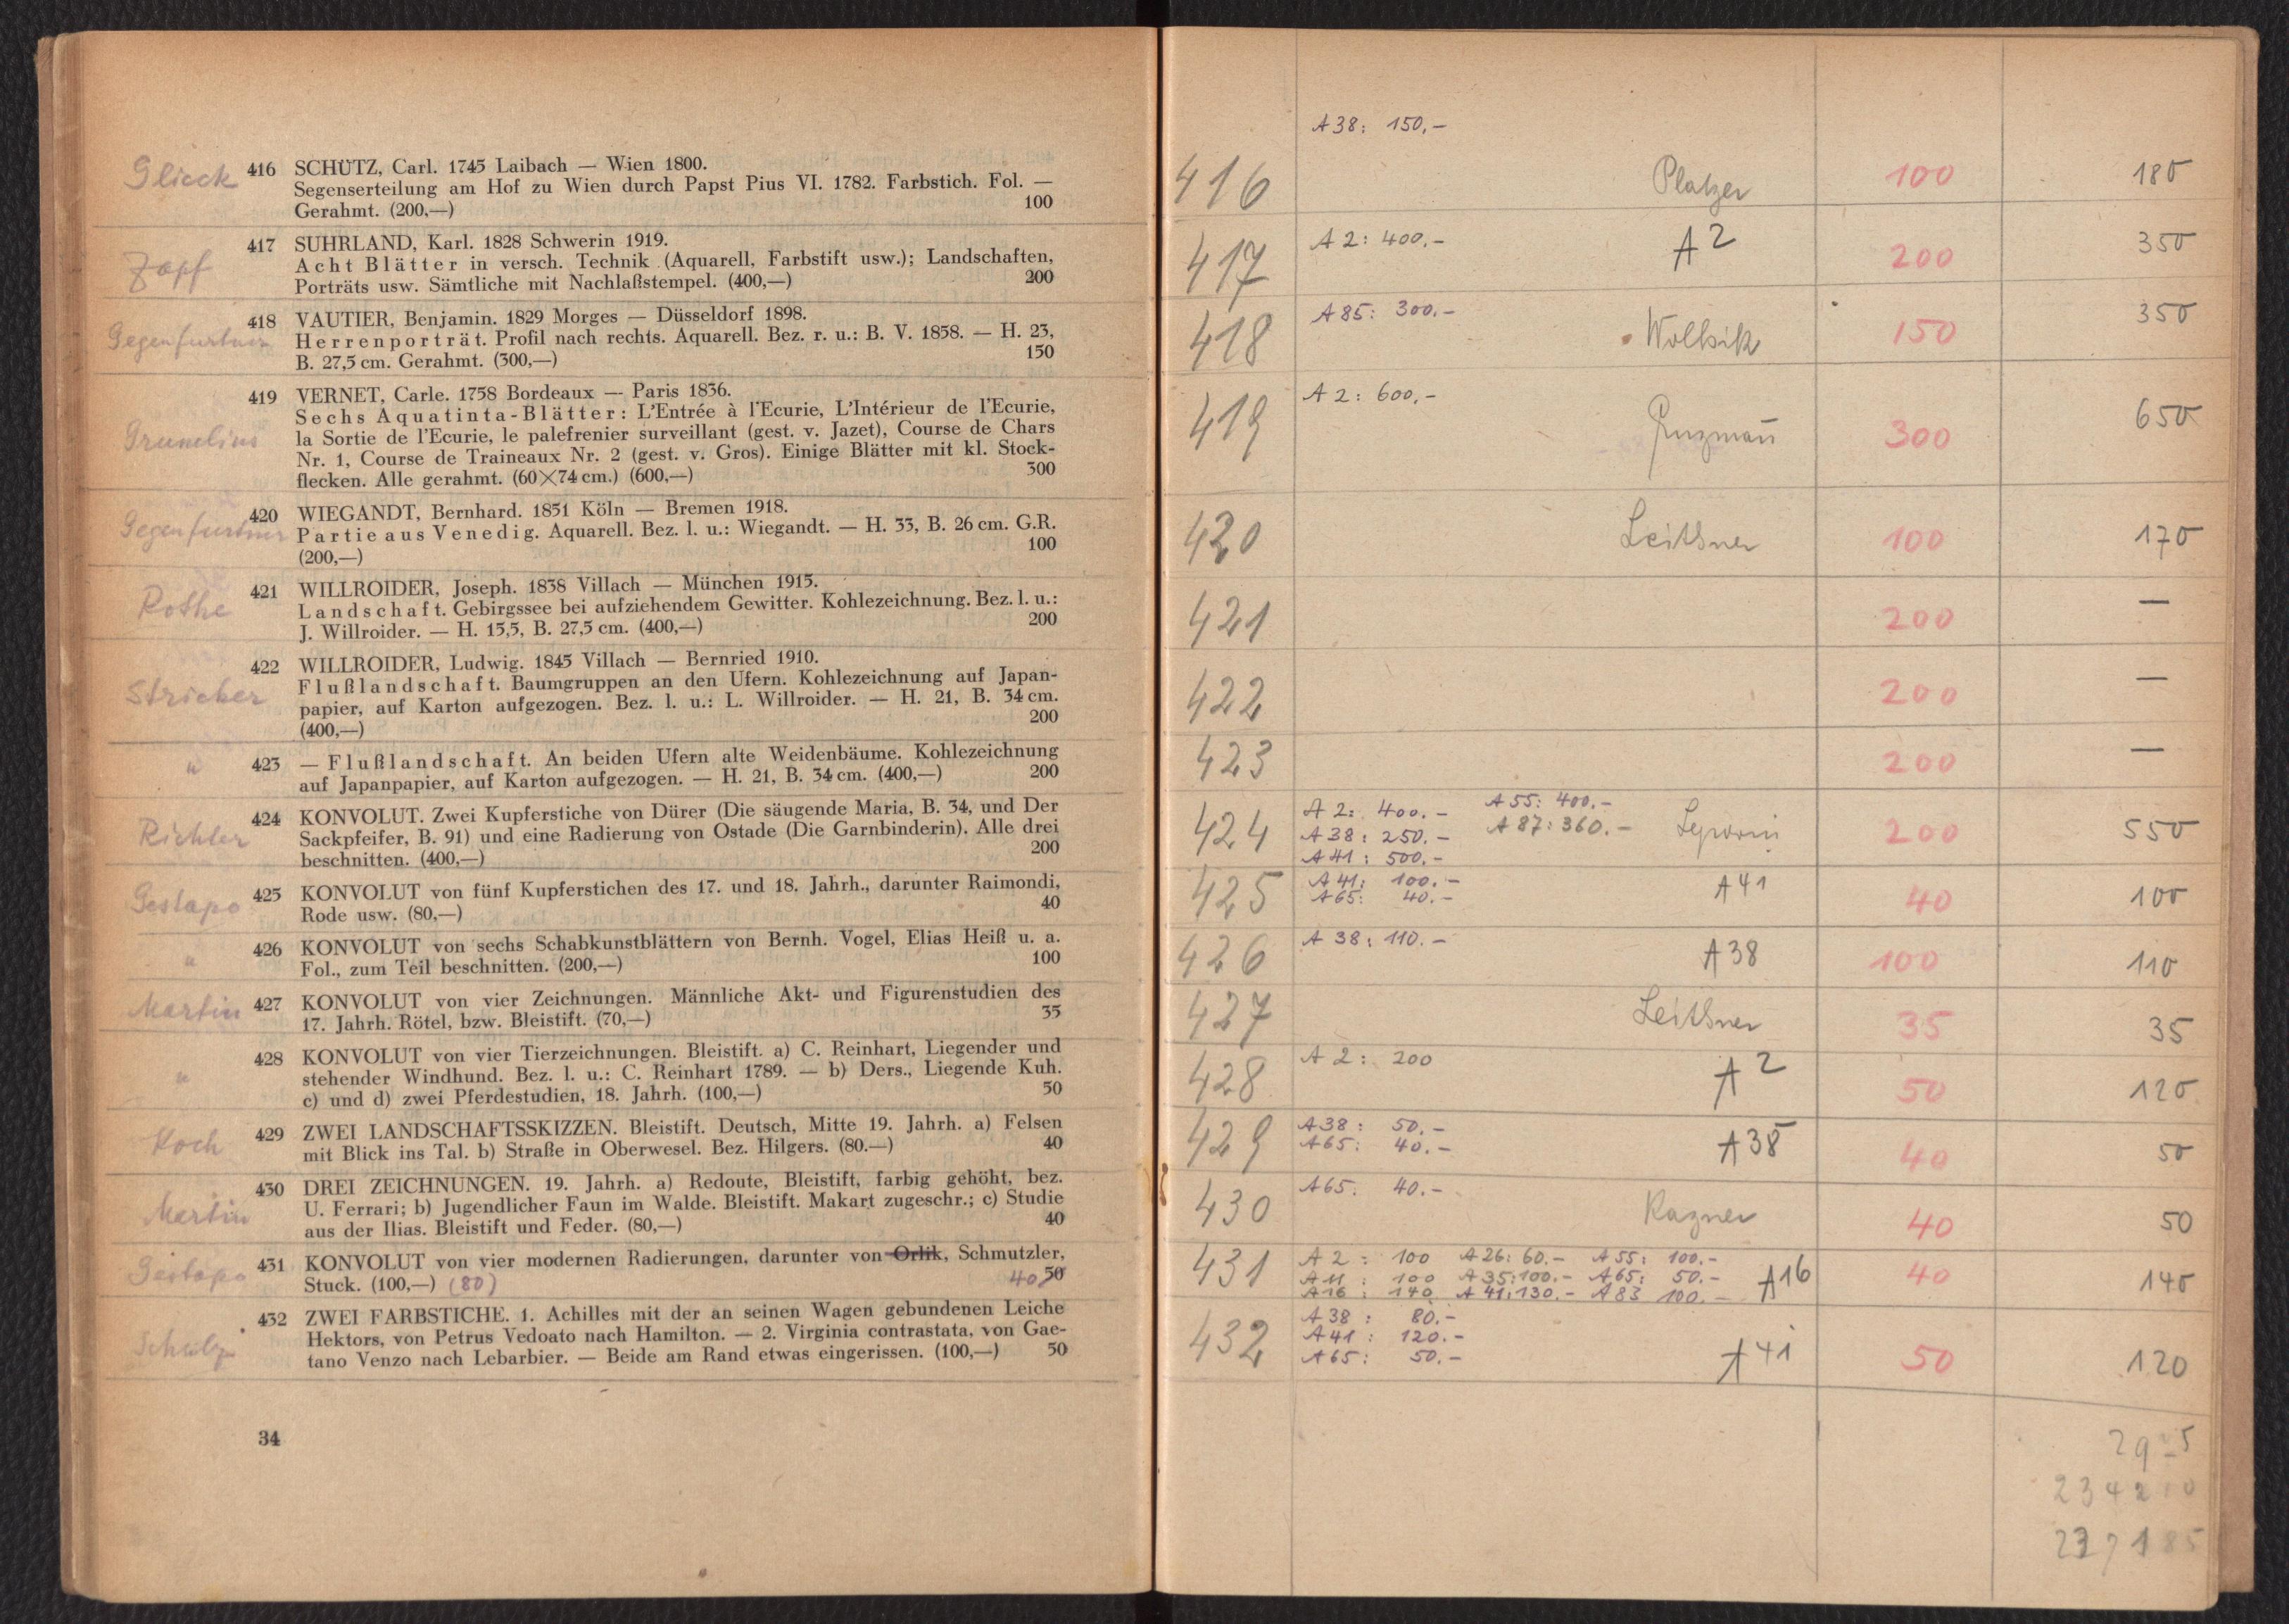 Glieck 416 SCHÜTZ, Carl. 1745 Laibach — Wien 1800.
Segenserteilung am Hof zu Wien durch Papst Pius VI. 1782. Farbstich. Fol. —
Gerahmt. (200,—) 100
Zapf 417 SUHRLAND, Karl. 1828 Schwerin 1919.
Acht Blätter in versch. Technik (Aquarell, Farbstift usw.); Landschaften,
Porträts usw. Sämtliche mit Nachlaßstempel. (400,—) 200
Gegenfurtner 418 VAUTIER, Benjamin. 1829 Morges — Düsseldorf 1898.
Herrenporträt. Profil nach rechts. Aquarell. Bez. r. u.: B. V. 1858. — H. 23,
B. 27,5 cm. Gerahmt. (300,—) 150
419 VERNET, Carle. 1758 Bordeaux — Paris 1836.
Sechs Aquatinta-Blätter: L'Entrée à l'Ecurie, L'Intérieur de l'Ecurie,
Grunelius la Sortie de l'Ecurie, le palefrenier surveillant (gest. v. Jazet), Course de Chars
Nr. 1, Course de Traineaux Nr. 2 (gest. v. Gros). Einige Blätter mit kl. Stock-
flecken. Alle gerahmt. (60×74 cm.) (600,—) 300
Gegenfurtner 420 WIEGANDT, Bernhard. 1851 Köln — Bremen 1918.
Partie aus Venedig. Aquarell. Bez. l. u.: Wiegandt. — H. 33, B. 26 cm. G.R.
(200,—) 100
Rothe 421 WILLROIDER, Joseph. 1838 Villach — München 1915.
Landschaft. Gebirgssee bei aufziehendem Gewitter. Kohlezeichnung. Bez. l. u.:
J. Willroider. — H. 15,5, B. 27,5 cm. (400,—) 200
422 WILLROIDER, Ludwig. 1845 Villach — Bernried 1910.
Stricker Flußlandschaft. Baumgruppen an den Ufern. Kohlezeichnung auf Japan-
papier, auf Karton aufgezogen. Bez. l. u.: L. Willroider. — H. 21, B. 34 cm.
(400,—) 200
" 423 — Flußlandschaft. An beiden Ufern alte Weidenbäume. Kohlezeichnung
auf Japanpapier, auf Karton aufgezogen. — H. 21, B. 34 cm. (400,—) 200
Richter 424 KONVOLUT. Zwei Kupferstiche von Dürer (Die säugende Maria, B. 34, und Der
Sackpfeifer, B. 91) und eine Radierung von Ostade (Die Garnbinderin). Alle drei
beschnitten. (400,—) 200
Gestapo 425 KONVOLUT von fünf Kupferstichen des 17. und 18. Jahrh., darunter Raimondi,
Rode usw. (80,—) 40
" 426 KONVOLUT von sechs Schabkunstblättern von Bernh. Vogel, Elias Heiß u. a.
Fol., zum Teil beschnitten. (200,—) 100
Martin 427 KONVOLUT von vier Zeichnungen. Männliche Akt- und Figurenstudien des
17. Jahrh. Rötel, bzw. Bleistift. (70,—) 35
" 428 KONVOLUT von vier Tierzeichnungen. Bleistift. a) C. Reinhart, Liegender und
stehender Windhund. Bez. l. u.: C. Reinhart 1789. — b) Ders., Liegende Kuh.
c) und d) zwei Pferdestudien, 18. Jahrh. (100,—) 50
Koch 429 ZWEI LANDSCHAFTSSKIZZEN. Bleistift. Deutsch, Mitte 19. Jahrh. a) Felsen
mit Blick ins Tal. b) Straße in Oberwesel. Bez. Hilgers. (80.—) 40
Martin 430 DREI ZEICHNUNGEN. 19. Jahrh. a) Redoute, Bleistift, farbig gehöht, bez.
U. Ferrari; b) Jugendlicher Faun im Walde. Bleistift. Makart zugeschr.; c) Studie
aus der Ilias. Bleistift und Feder. (80,—) 40
Gestapo 431 KONVOLUT von vier modernen Radierungen, darunter von Orlik, Schmutzler,
Stuck. (100,—) (80) 40,— 50
Schulz 432 ZWEI FARBSTICHE. 1. Achilles mit der an seinen Wagen gebundenen Leiche
Hektors, von Petrus Vedoato nach Hamilton. — 2. Virginia contrastata, von Gae-
tano Venzo nach Lebarbier. — Beide am Rand etwas eingerissen. (100,—) 50
34
A 38: 150.—
416 Platzer 100 180
417 A 2: 400.— A 2 200 350
418 A 85: 300.— Wollsik 150 350
419 A 2: 600.— 300 650
420 Leithner 100 170
421 200 —
422 200 —
423 200 —
424 A 2: 400.— A 55: 400.— 200 550
A 38: 250.— A 87: 360.—
A 41: 500.—
425 A 41: 100.— A 41 40 100
A 65: 40.—
426 A 38: 110.— A 38 100 110
427 Leithner 35 35
428 A 2: 200 A 2 50 120
429 A 38: 50.— A 38 40 50
A 65: 40.—
430 A 65: 40.— Kazner 40 50
431 A 2: 100 A 26: 60.— A 55: 100.— 40 140
A 11: 100 A 35: 100.— A 65: 50.— A 16
A 16: 140 A 41: 130.— A 83 100.—
432 A 38: 80.— 50 120
A 41: 120.— A 41
A 65: 50.—